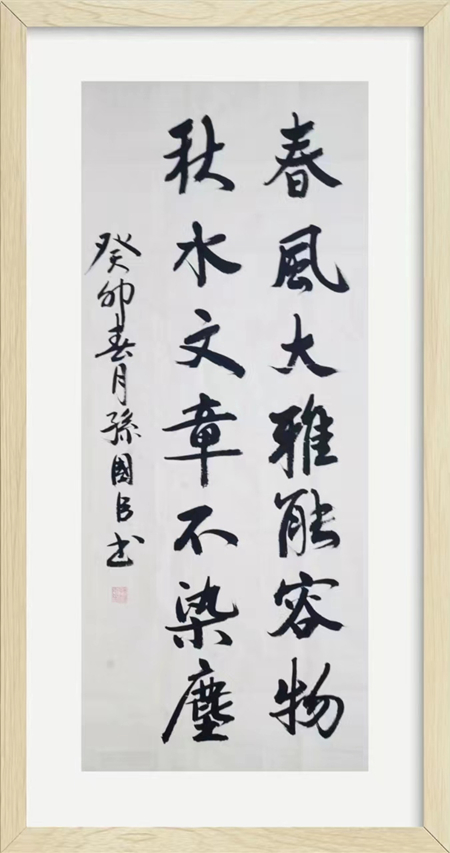 春風大雅能容物
秋水文章不染塵
癸卯春月孫國臣书